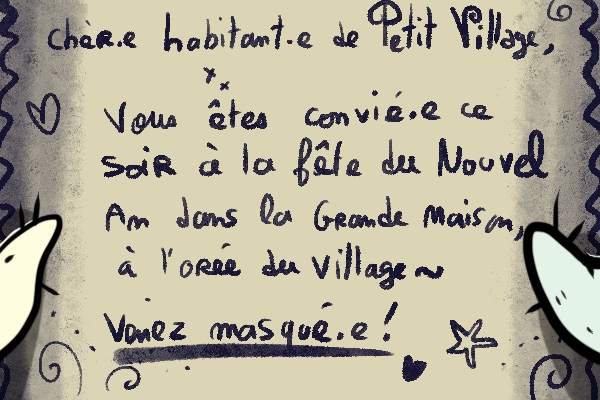 Chèr.e habitant.e de Petit Village,
Vous êtes convié.e ce
soir à la fête du Nouvel
An dans la Grande Maison,
à l'orée du village~
Venez masqué.e !